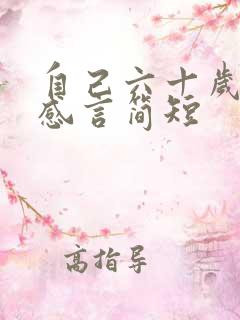 自己六十岁
感言简短
高指导